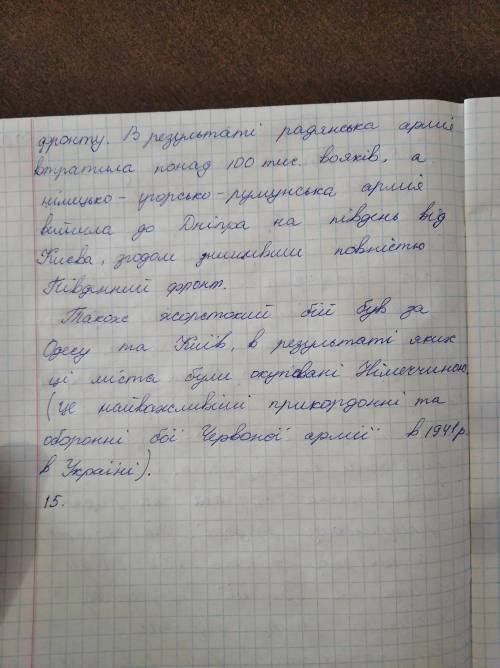 фронту. В результаті радянська армія
втратила понад 100 тис. вояків, а
німицько-угорсько-румунська армія
вийшла до Дніпра на південь від
Києва, згодом знищивши повністю
Південний фронт.
Також жорстокий бій був за
Одесу та Київ, в результаті яких
ці міста були окуповані Німеччиною
(це найважливіші прикордонні та
оборонні бої Червоної армії в 1941р.
в Україні).
15.